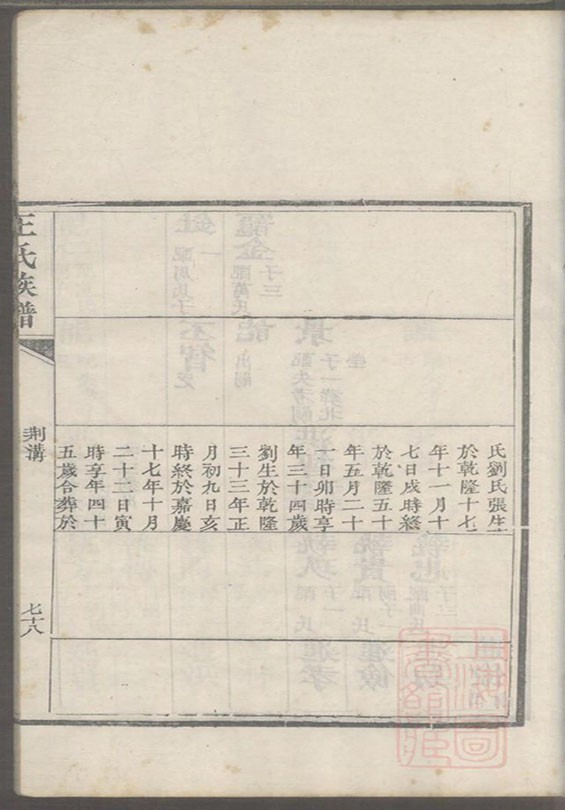 氏劉氏張生
於乾隆十七
年十一月十
七日戌時終
於乾隆五十
年五月二十
一日卯時享
年三十四歲
劉生於乾隆
三十三年正
月初九日亥
時終於嘉慶
十七年十月
二十二日寅
時享年四十
五歲合葬於
王氏族譜
荆溝
七十八